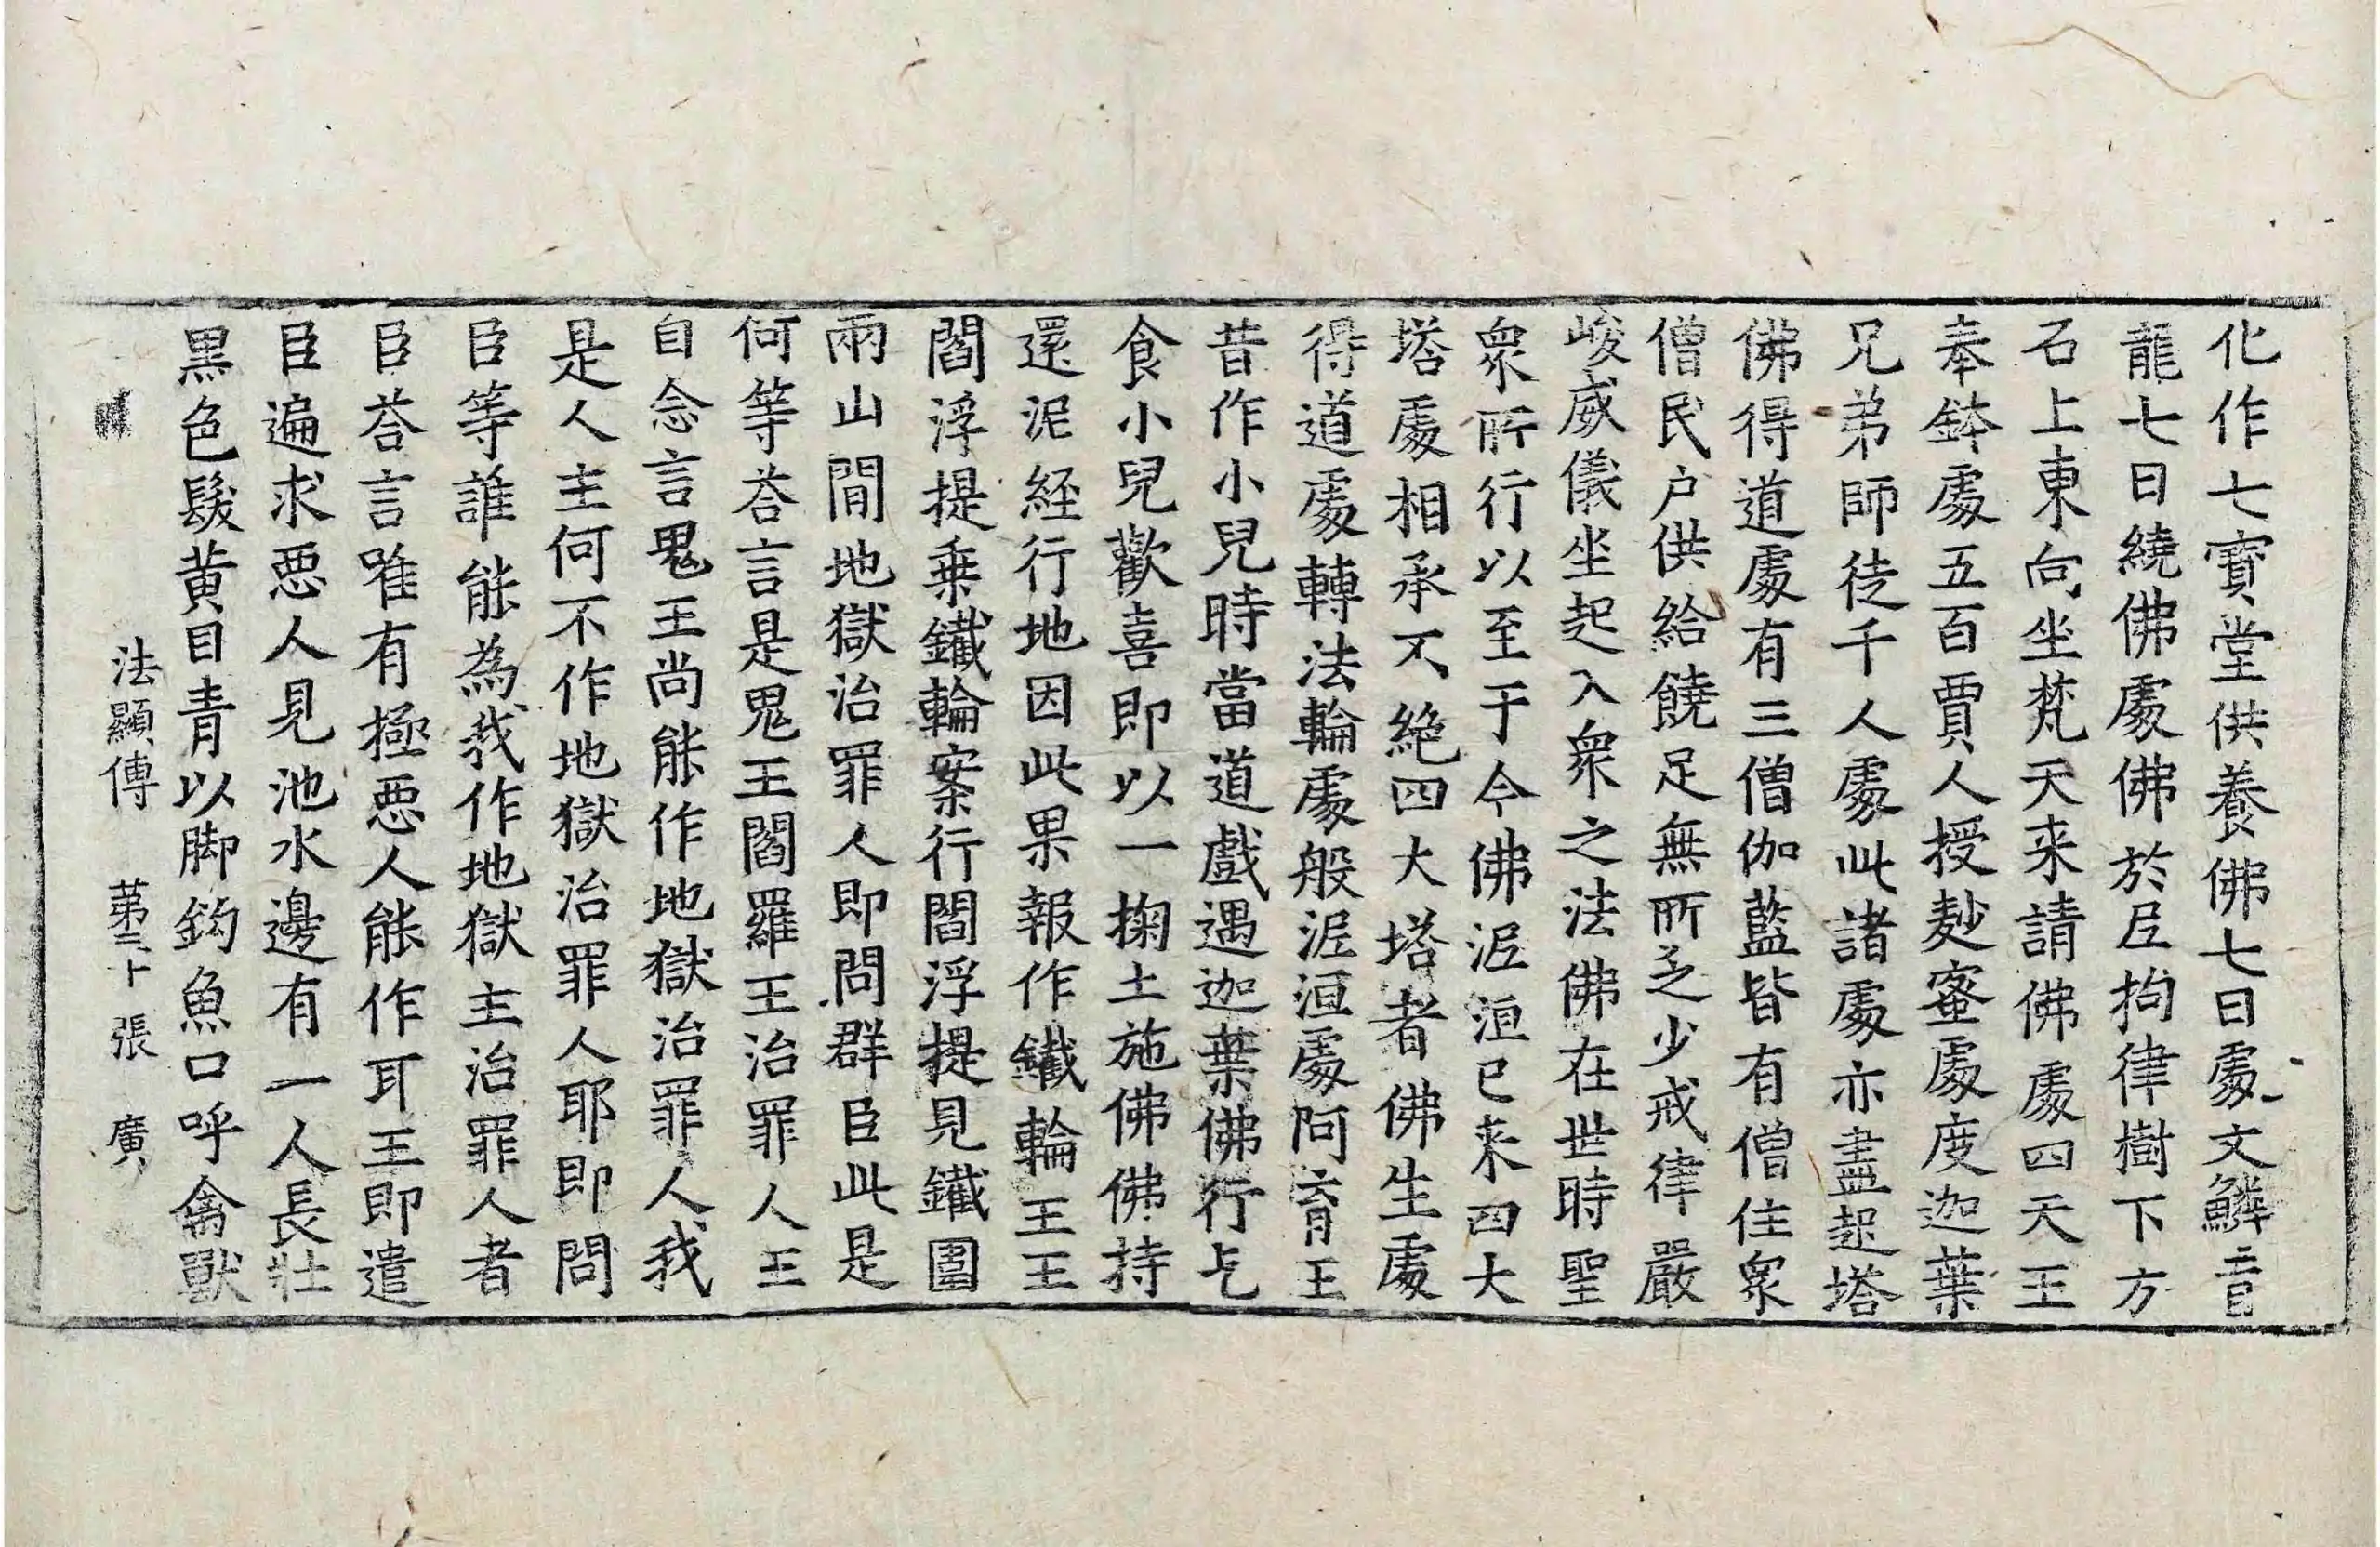 化作七寶堂供養佛七日處文鱗盲
龍七日繞佛處佛於尼拘律樹下方
石上東向坐梵天来請佛處四天王
奉鉢處五百賈人授麨蜜處度迦葉
兄弟師徒千人處此諸處亦盡起塔
佛得道處有三僧伽藍皆有僧住衆
僧民户供給饒足無所乏少戒律嚴
峻威儀坐起入衆之法佛在世時聖
衆所行以至于今佛泥洹已来四大
塔處相承不絶四大塔者佛生處
得道處轉法輪處般泥洹處阿育王
昔作小兒時當道戲遇迦葉佛行乞
食小兒歡喜即以一掬土施佛佛持
還泥經行地因此果報作鐵輪王王
閻浮提乗鐵輪案行閻浮提見鐵圍
兩山閒地獄治罪人即問群臣此是
何等荅言是鬼王閻羅王治罪人王
自念言鬼王尚能作地獄治罪人我
是人主何不作地獄治罪人耶即問
臣等誰能為我作地獄主治罪人者
臣荅言唯有極惡人能作耳王即遣
臣遍求惡人見池水邊有一人長壯
黒色髮黄目青以脚鈎魚口呼禽獸
法顯傳 第二十張 廣